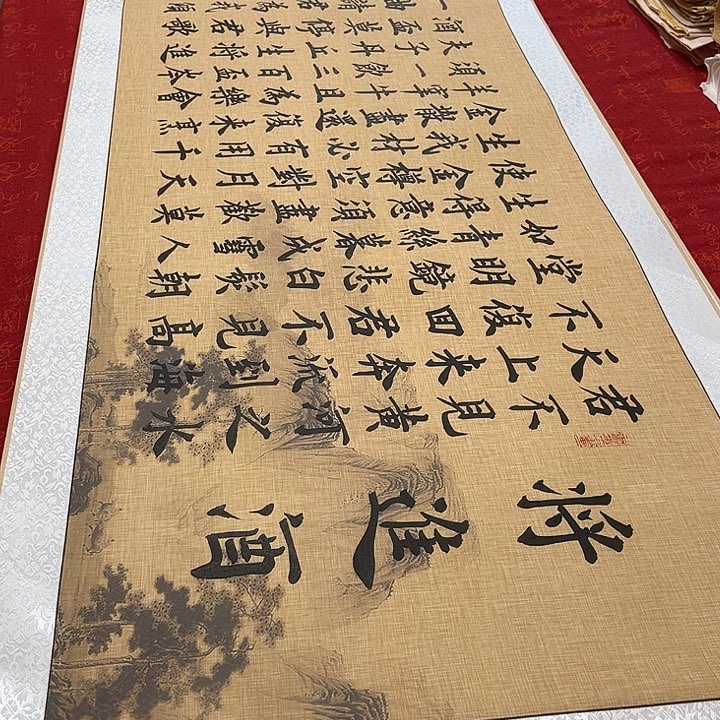 將進酒
君不見黃河之水
天上來奔流到海
不復回君不見高
堂明鏡悲白髮朝
如青絲暮成雪人
生得意須盡歡莫
使金樽空對月天
生我材必有用千
金散盡還復來烹
羊宰牛且為樂會
須一飲三百盃岑
夫子丹丘生將進
酒盃莫停與君歌
一曲